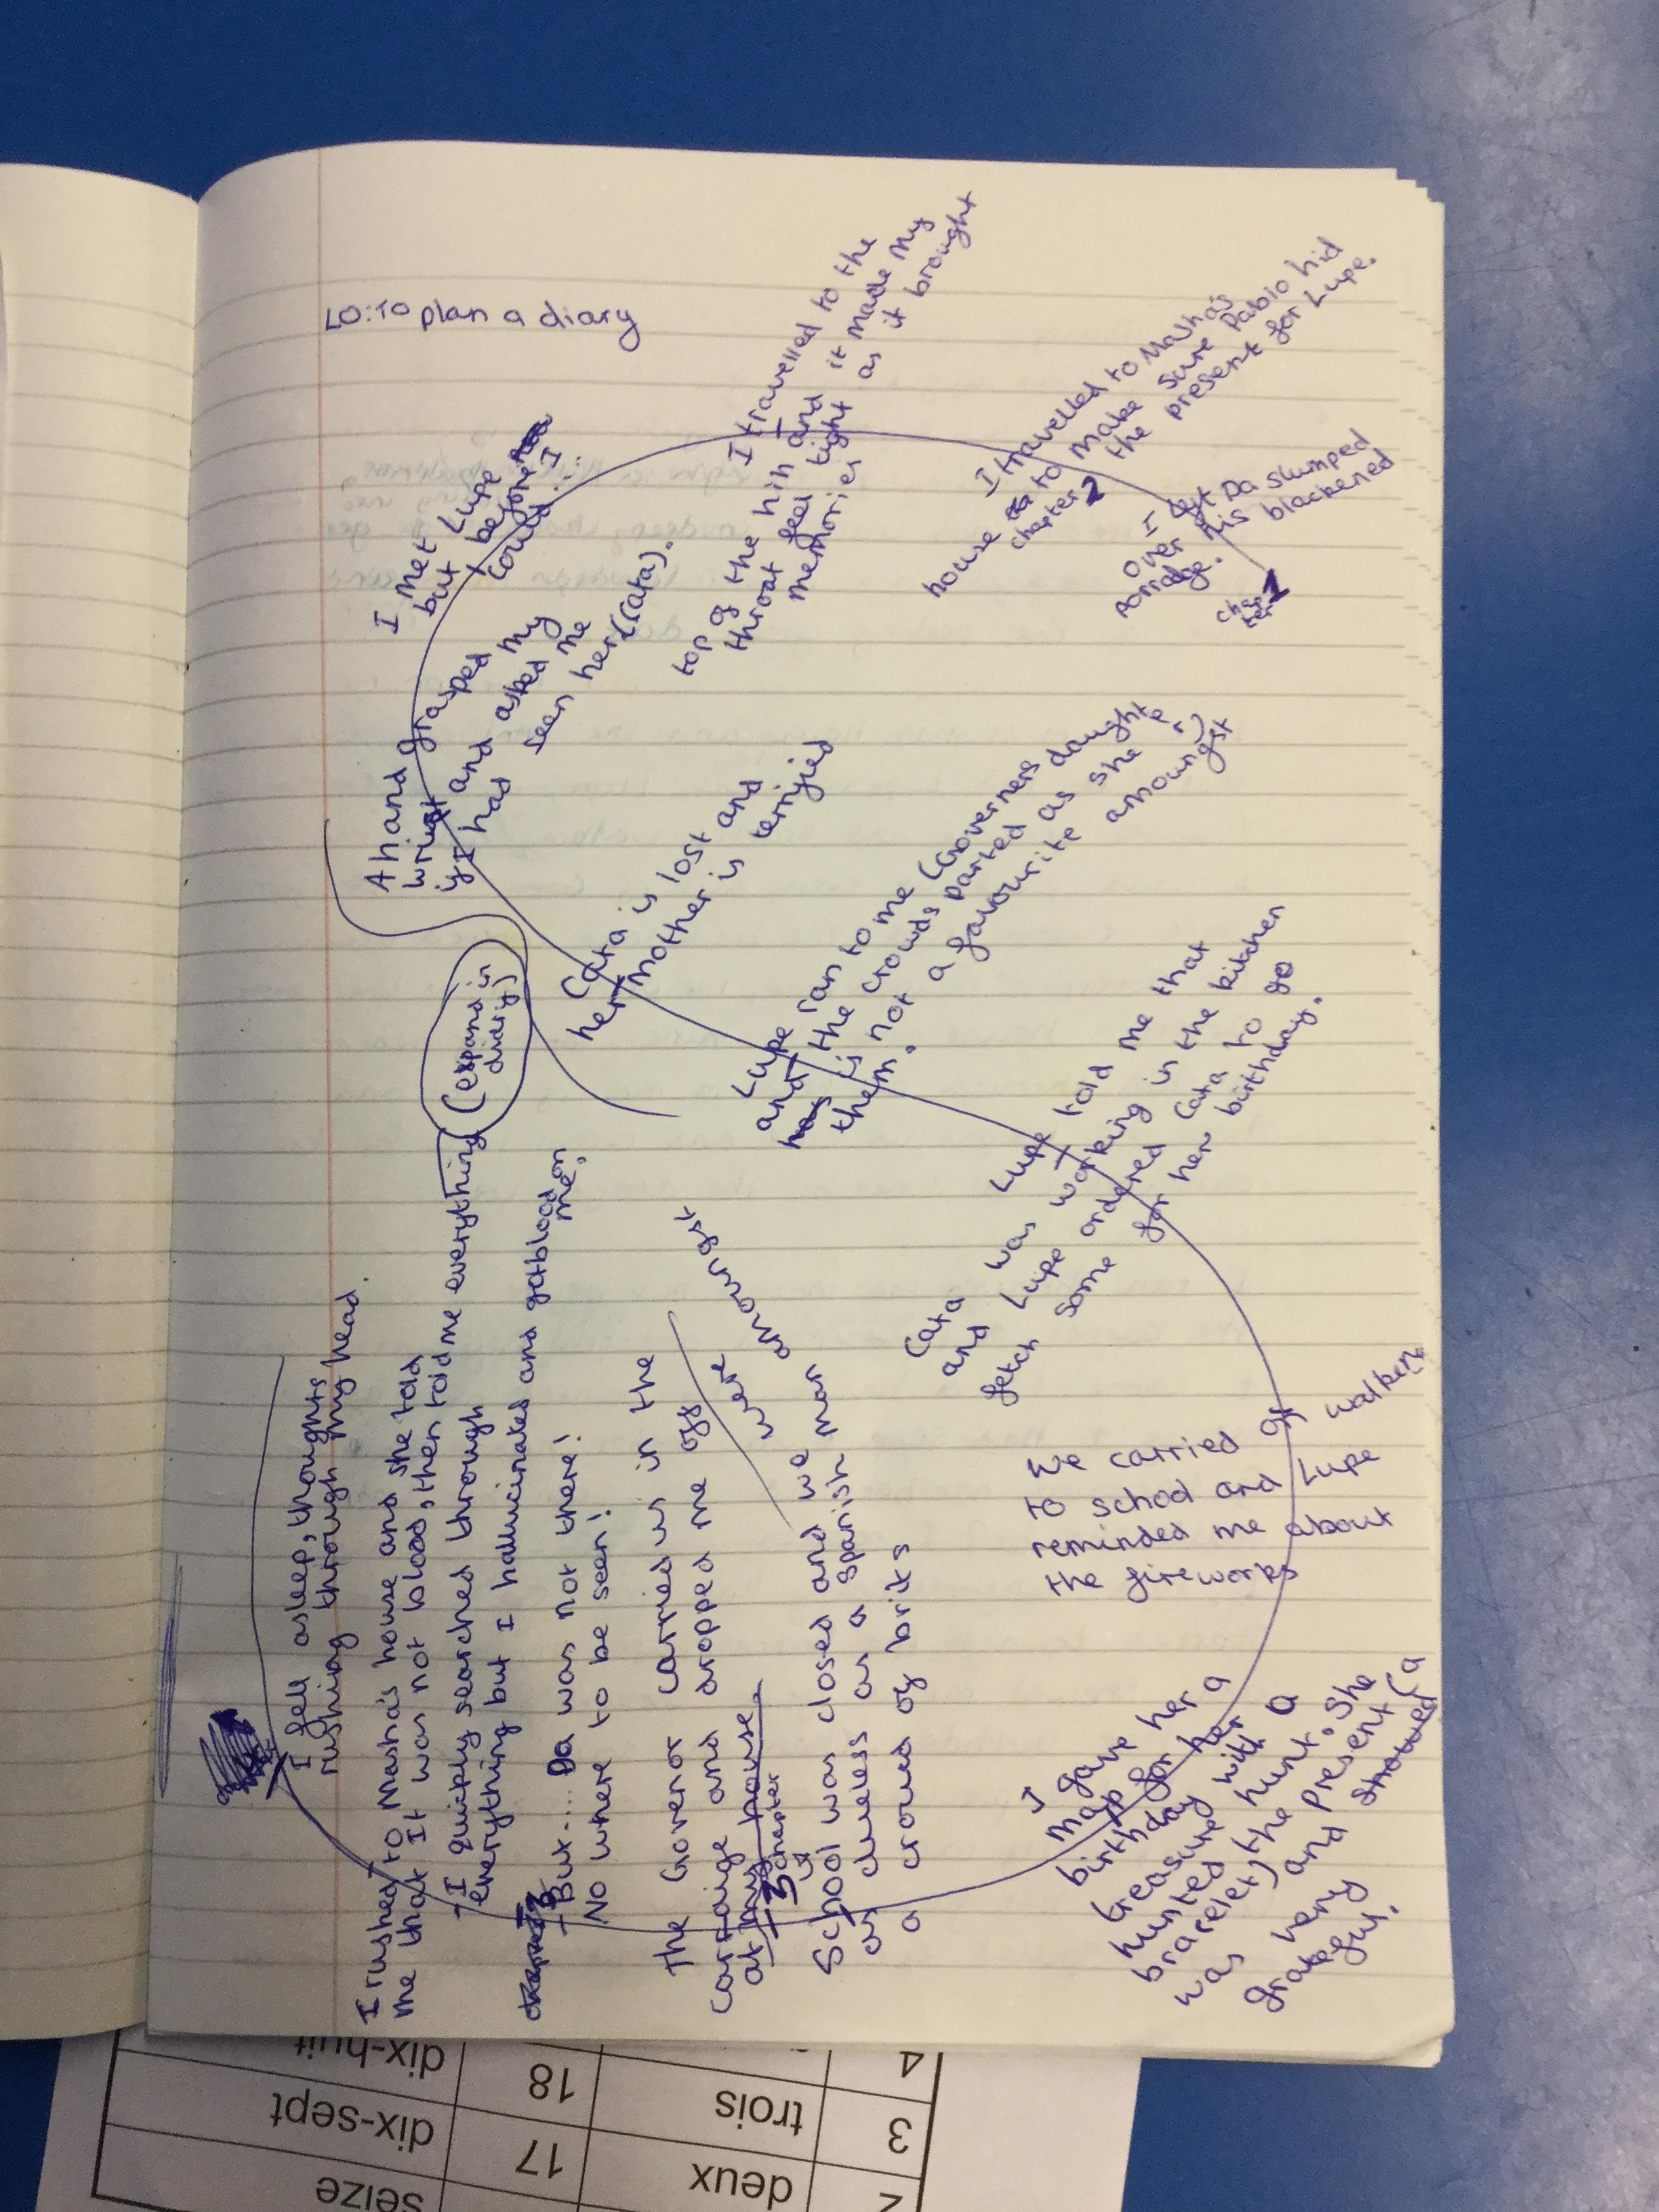 LO: To plan a diary
chapter 1
I left Da slumped
over his blackened
porridge.
chapter 2
I travelled to Masha's
house to make sure Pablo hid
the present for Lupe.
I travelled to the
top of the hill and it made my
throat feel tight as it brought
memories
I met Lupe
but before
I could...
A hand grasped my
wrist and asked me
if I had seen her (Cata).
Cata is lost and
her mother is terrified
Lupe ran to me (Governers daughter)
and the crowds parted as she
is not a favourite amoungst
them.
Lupe told me that
Cata was working in the kitchen
and Lupe ordered Cata to go
fetch some for her birthday.
We carried on walken
to school and Lupe
reminded me about
the fireworks
I gave her a
map for her
birthday with a
treasure hunt. She
hunted the present (a
bracelet) and showed
was very
grateful.
chapter 3
School was closed and we were amoungst
as clueless as a Spanish man
a croud of brits
The Govenor carried us in the
carraige and dropped me off
at my house.
But.... Da was not there!
No where to be seen!
I quickly searched through
everything but I hallucinated and got blood on
me.
I rushed to Masha's house and she told
me that It was not blood, then told me everything (expand in
diary)
I fell asleep, thoughts
rushing through my head.
seize
2
deux
17
dix-sept
3
trois
18
dix-huit
4